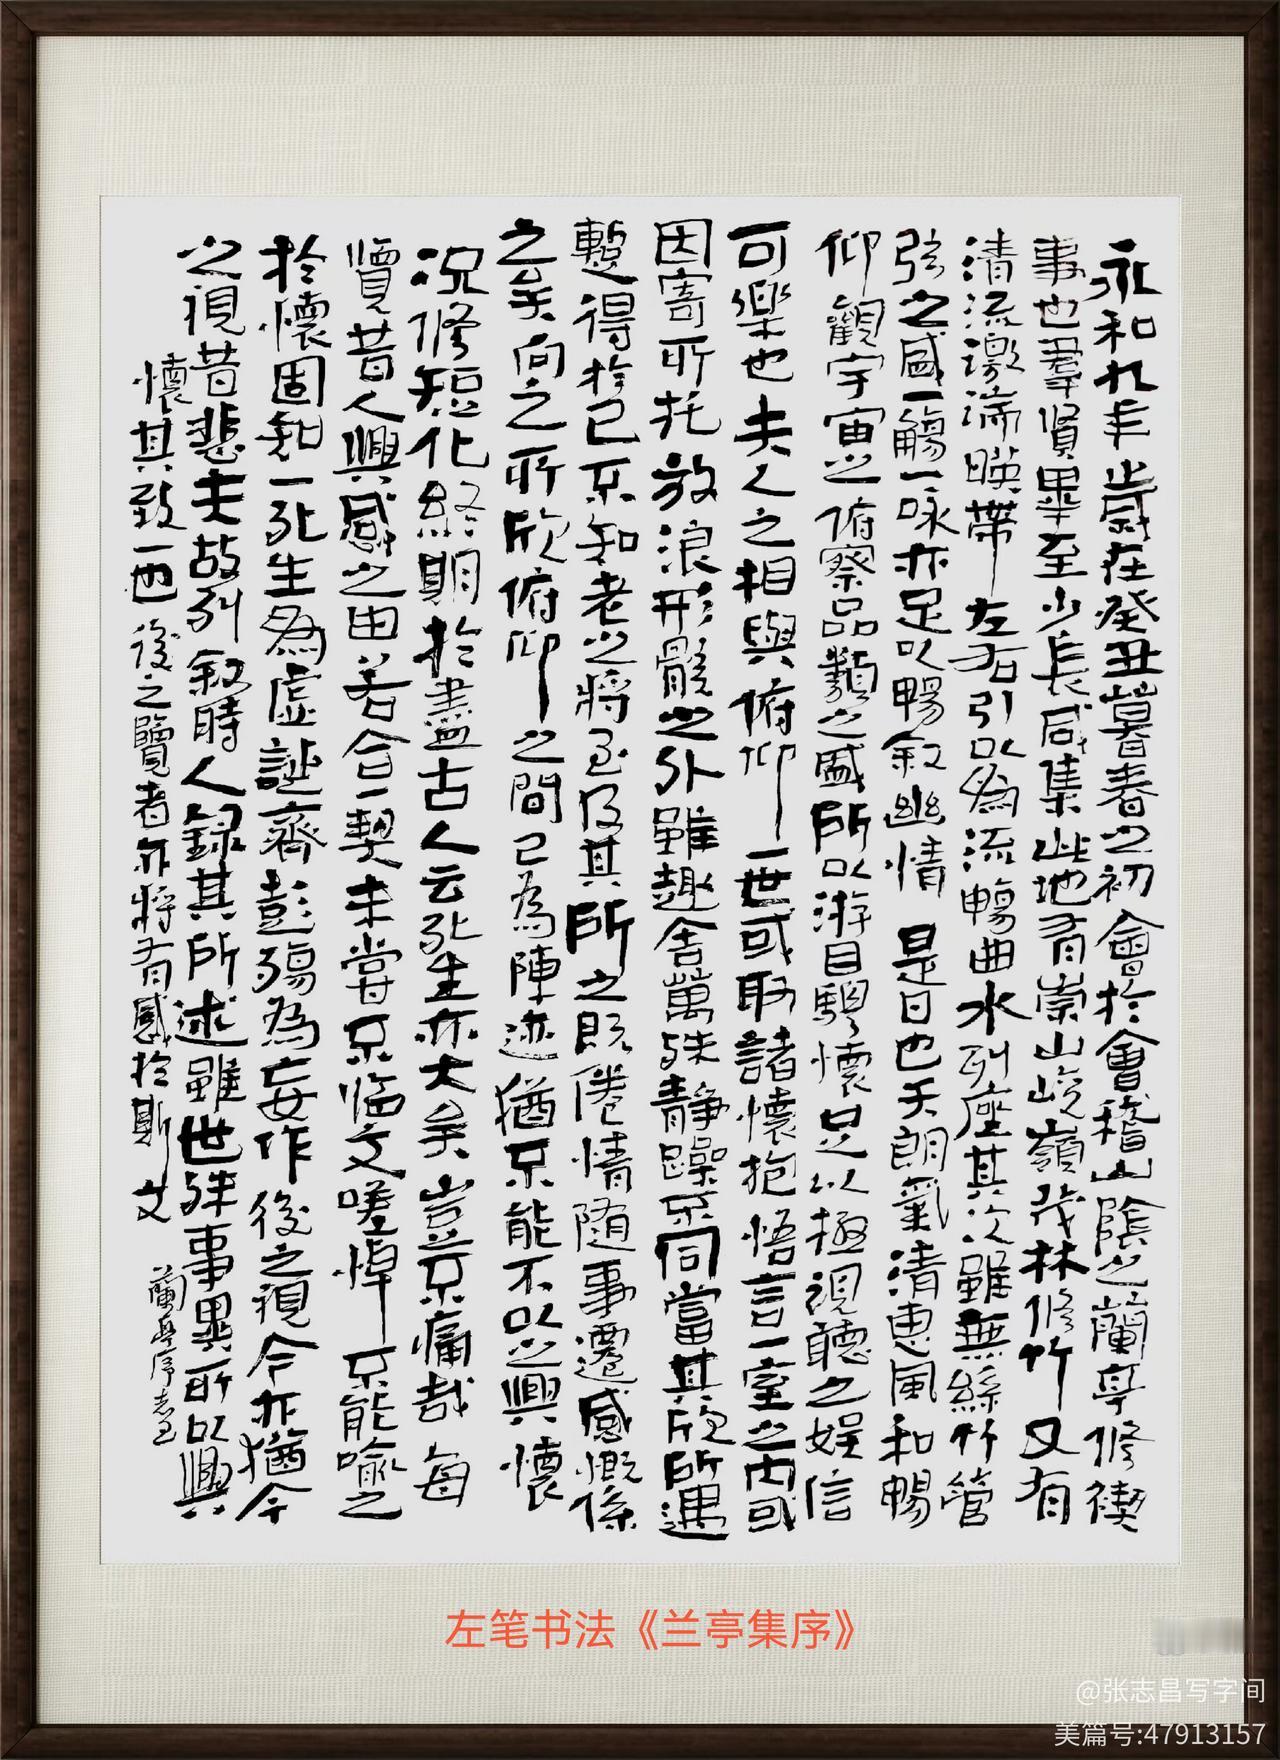 永和九年歲在癸丑暮春之初會於會稽山陰之蘭亭修禊
事也羣賢畢至少長咸集此地有崇山峻嶺茂林修竹又有
清流激湍暎帶左右引以為流觴曲水列座其次雖無絲竹管
弦之盛一觴一咏亦足以暢叙幽情是日也天朗氣清惠風和暢
仰觀宇宙之俯察品類之盛所以游目騁懷足以極視聽之娱信
可樂也夫人之相與俯仰一世或取諸懷抱悟言一室之内或
因寄所托放浪形骸之外雖趣舍萬殊静躁不同當其欣所遇
暫得於己不知老之將至及其所之既倦情随事遷感慨係
之矣向之所欣俯仰之間已為陳迹猶不能不以之興懷
况修短化終期於盡古人云死生亦大矣豈不痛哉每
覽昔人興感之由若合一契未嘗不临文嗟悼不能喻之
於懷固知一死生為虚誕齊彭殤為妄作後之視今亦猶今
之視昔悲夫故列叙時人録其所述雖世殊事異所以興
懷其致一也後之覽者亦將有感於斯文
蘭亭序志
左笔书法《兰亭集序》
@张志昌写字间
美篇号:47913157